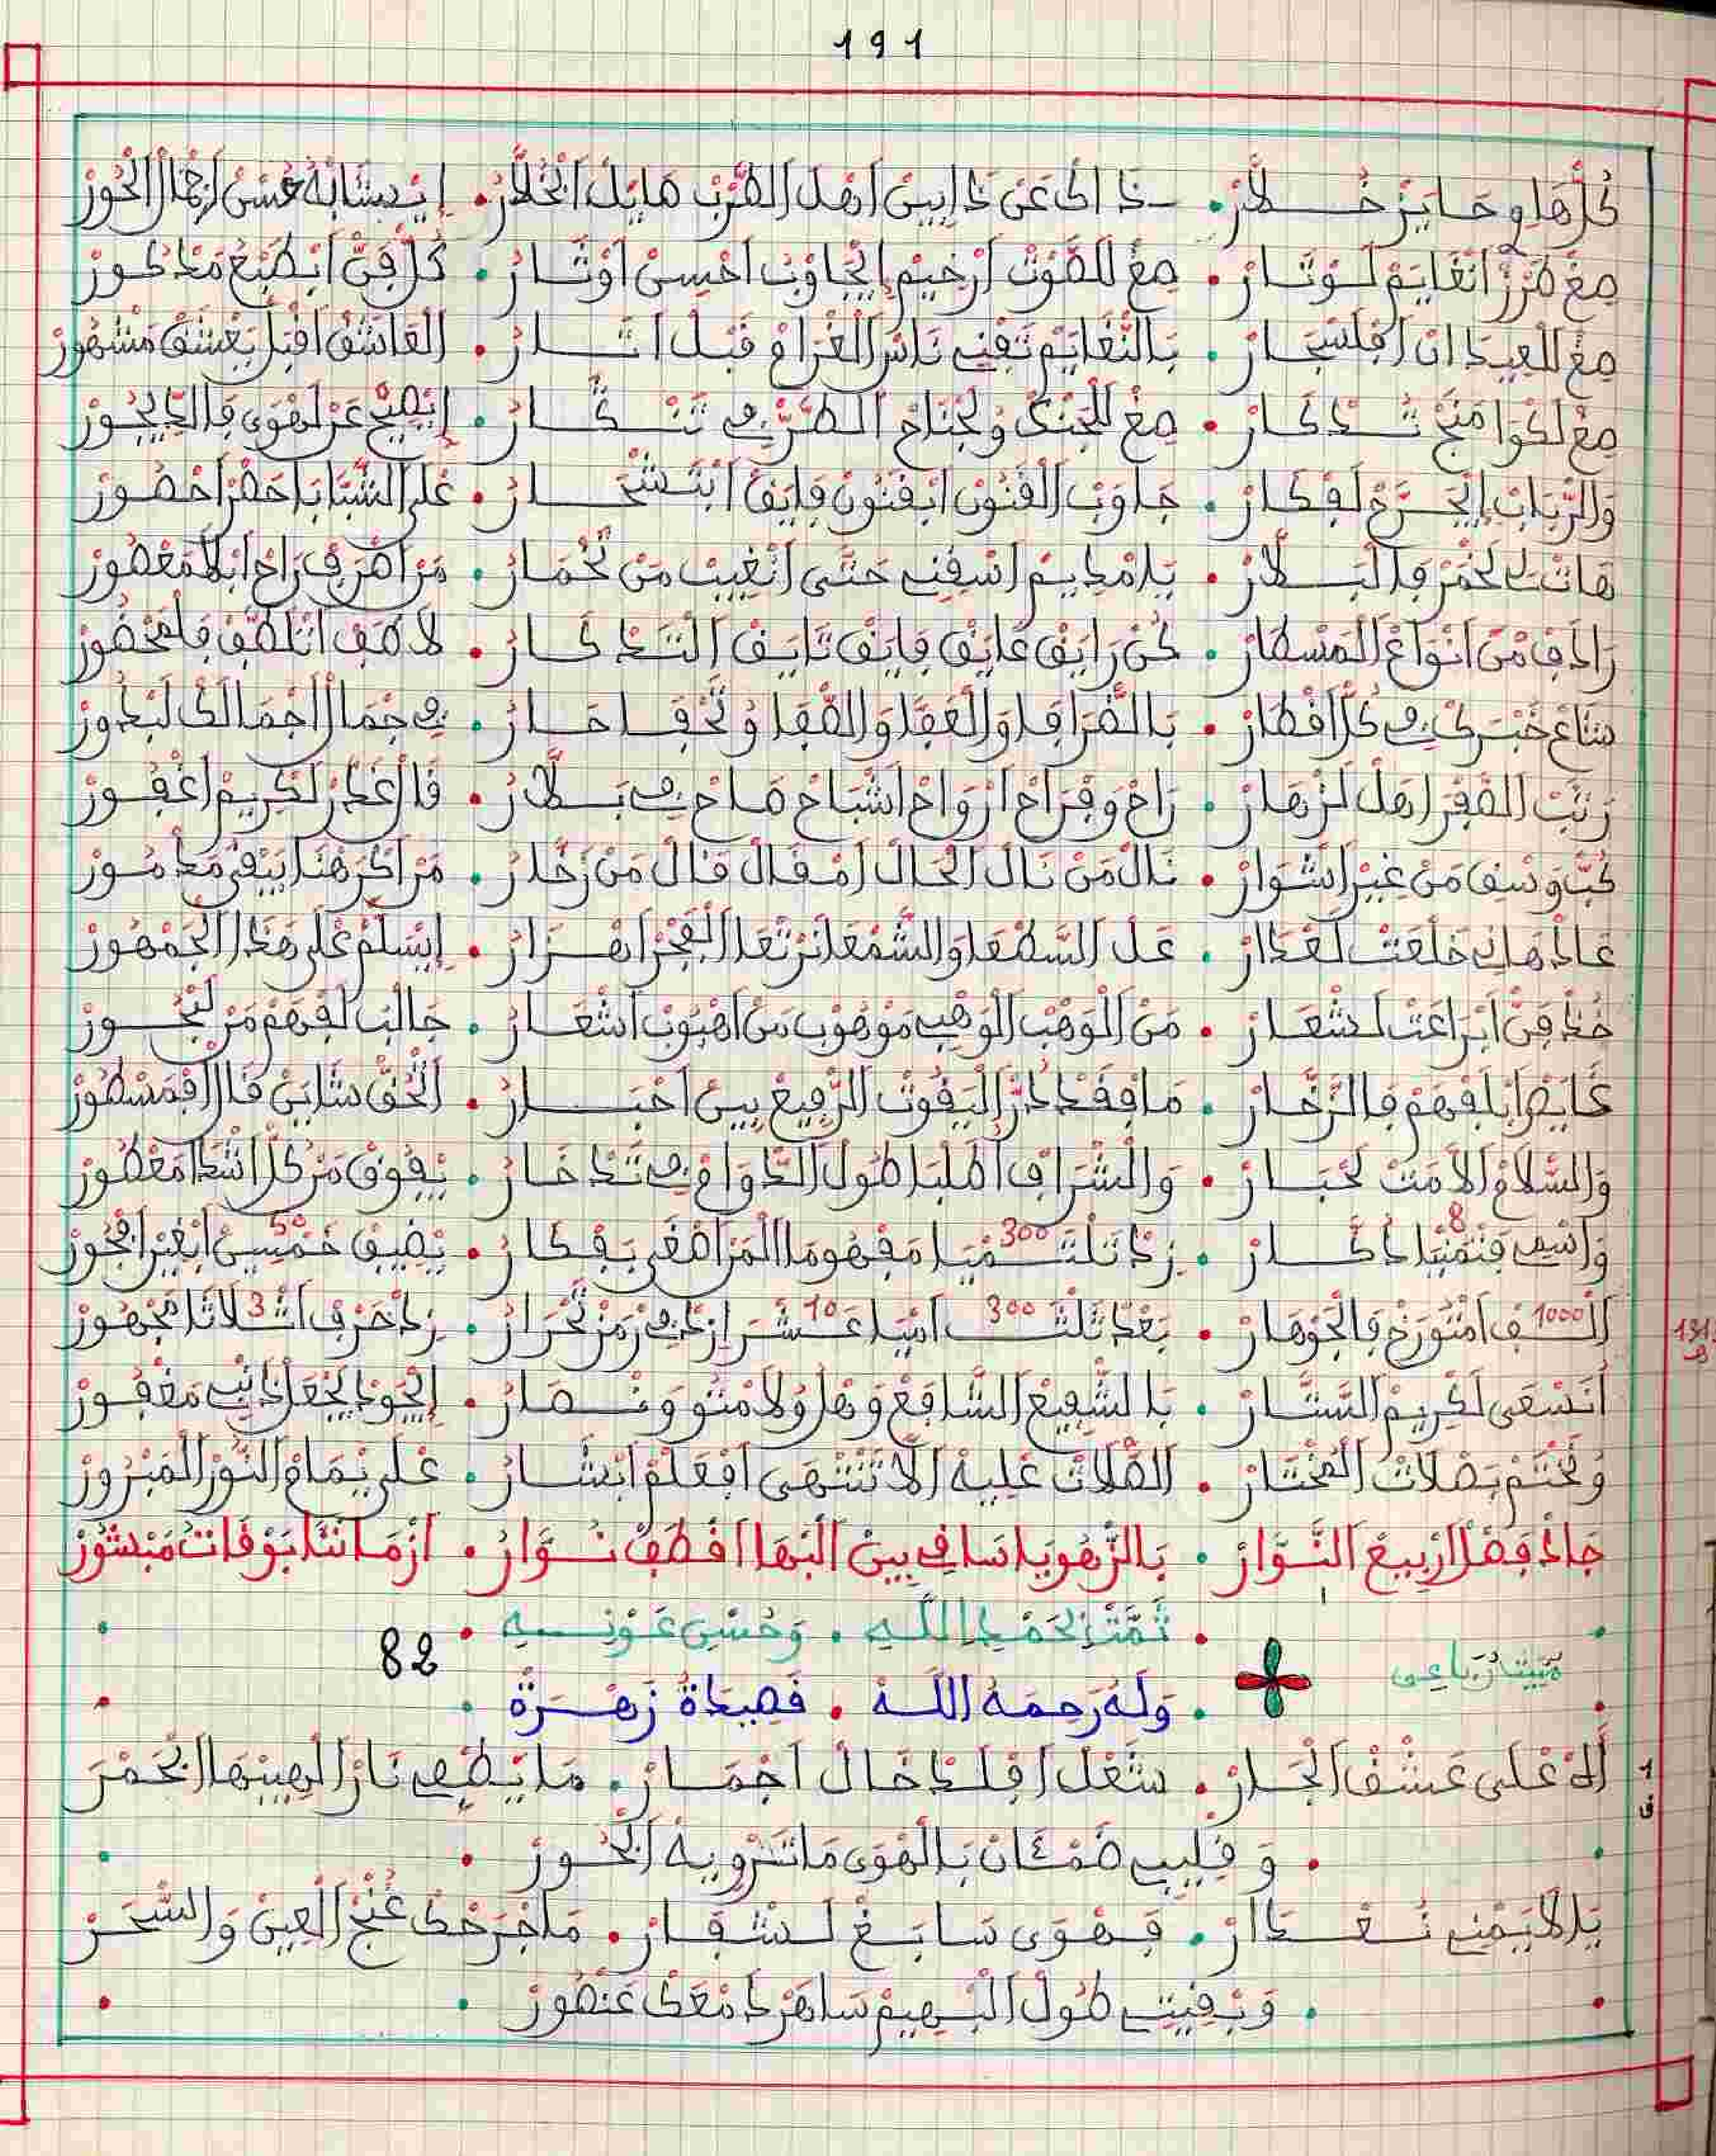 191
كُلّ هَاوِ حَايَزْ خْلَارْ . خَدّ اكْ عَنْ دَا ايبِينْ اهْلْ الطّْرَبْ هَايَكْ الْخْلَارْ . ايدِيشَابَهْ حُسْنْ اجْمَالْ الْحُورْ
مِيعْ طَرْزْ انْغَايَمْ لَوْتَارْ . مِيعْ للصَّوْتْ ارْخِيمْ ايْجَاوَبْ احْسِينْ اوْتَارْ . كُلّ فَنّْ ابْطَبْعْ مَذْكُورْ
مِيعْ للعِيدَانْ افْلَسْحَارْ . بَالنّْغَايَمْ تَفْنِي نَاسْ الغْرَامْ قْبَلْ اتَارْ . العَاشَقْ اقْبَلْ يَعْشَقْ مَشْهُورْ
مِيعْ لَكْوَامَنْجْ تَدْكَارْ . مِيعْ للجَنْكْ وُلَجْنَاحْ الطَّرّْ فِي تَنْكَارْ . ايْصِيحْ عَنْ لَهْوَى فَالدِّيجُورْ
وَالرّْبَابْ ايْجَرَّحْ لَفْكَارْ . جَاوَبْ الفْنُونْ ابْفْنُونْ فَايَقْ ابْتَسْحَارْ . عْلَى الشّْبَابَا حَضْرْ احْضُورْ
هَاتْ لِي لَخْمَرْ فَالبَلَّارْ . يَا مْدِايَمْ اسْقِنِي حَتَّى انْغِيبْ مَنْ لَخْمَارْ . مَنْ اصْرِيفْ رَاحْ ابْلَا مَعْصُورْ
رَادَفْ مْنْ انْوَاعْ المَسْطَارْ . كُنْ رَايَقْ عَايَقْ فَايَقْ تَايَفْ التَّدْكَارْ . لَاطَفْ اتْلَطَّفْ فَلْمَحْضُورْ
شَاعْ خَبْرَكْ فِي كُلّْ اقْطَارْ . بَالظّْرَافَا وَالعَقَّا وَالصّْفَا وُلَحْقَا حَارْ . فِي جْمَالْ اجْمَالَكْ لَبْدُورْ
رَتَّبْ الصّْفَرْ اهْلْ لَزْهَارْ . رَاحْ وَقْرَاحْ ارْوَاحْ اشْبَاحْ صَاحْ فِي بَلَّارْ . قَالْ عَدَّلْ لَكْرِيمْ اغْفُورْ
كُبّْ وَسْقِي مَنْ غِيرْ اشْوَارْ . نَالْ مَنْ نَالْ الْحَالْ امْقَالْ قَالْ مَنْ زَخَّارْ . مَنْ اكَرْهْنَا يَبْقَى مَدْمُورْ
عَادْ هَانِي خَلَعْتْ لَعْدَارْ . عَلْ السَّطْعَا وَالشَّمْعَا نَرْتْعَا الفْجَرْ اهْزَارْ . ايْسَلَّمْ عْلَى هَذَا الجَمْهُورْ
خُذْ فَنّْ ابْرَاعَتْ لَشْعَارْ . مَنْ الوَهْبْ الوَهْبِي مَوْهُوبْ مَنْ اهْبُوبْ اشْعَارْ . جَالَبْ لَفْهَمْ مَنْ لَبْحُورْ
غَايَصْ ابْلَفْهَمْ فَالزَّخَّارْ . مَا فْقَدْ دُرّْ اليَقُوتْ الرّْفِيعْ بِينْ احْبَارْ . الْحَقّْ شَايَنْ قَالْ افْمَسْطُورْ
وَالسّْلَامْ الْأُمَّتْ لَحْبَارْ . وَالشْرَافْ اطُلْبَا طُولْ الدّْوَامْ فِي تَدْخَارْ . يْفُوقْ مَنْ كُلّْ اشْدَا مَعْطُورْ
وَاسْمِي فَتْمَنْيَا 8 دَكَّارْ . زِدْ تَلْتَمْيَا 300 مَفْهُومَا الْمَنْ اصْغَى بَفْكَارْ . يْضِيفْ خَمْسِينْ 50 ابْغِيرْ افْجُورْ
ألْفْ 1000 امْتَوْرَخْ فَالْجَوْهَارْ . بَعْدْ تَلْتْ امْيَا 300 عَشْرَا 10 زِدْ فِي رَمْزْ تَحْرَارْ . زِدْ حَرْفْ اثْلَاثَا 3 مَجْهُورْ
1313
أنَسْعَى لَكْرِيمْ السَّتَّارْ . بَالشّْفِيعْ الشَّافَعْ وَهْلُ وُلَامْتُو وَنْصَارْ . ايْجُودْ يَجْعَلْ ذَنْبِي مَغْفُورْ
وُنَخْتَمْ بَصْلَاتْ المُخْتَارْ . الصْلَاتْ عْلِيهْ الَّا تَنْتَهَى افْعَلْمْ ابْشَارْ . عْلَى يْمَامْ النُّورْ المَبْرُورْ
جَادْ فَصْلْ ارْبِيعْ النُّوَّارْ . بَالزّْهُو يَا سَاقِي بِينْ البْهَا اقْطَفْ نُوَّارْ . ازْمَانَّا بَوْقَاتُ مَبْشُورْ
تَمَّتْ بِحَمْدِ اللَّهِ . وَحُسْنِ عَوْنِهِ
مبيت رباعي
82
وَلَهُ رَحِمَهُ اللَّهُ . قَصِيدَةُ زَهْرَةْ
ق 1
أَلَّهْ عْلَى عَشْقْ الْجَارْ . شَعْلْ افْلَدْخَالْ اجْمَارْ . مَا يَطْفِي نَارْ الْهِيبْهَا الْجَمْرَ
وَقْلِيبِي ضَمْئَانْ بَالْهْوَى مَا تَرْوِيهْ ابْحُورْ
يَا لَايَمْنِي نَعْدَارْ . فَهْوَى سَابَغْ لَشْفَارْ . مَا جَرْحَكْ غُنْجْ العِينْ وَالسّْحَرْ
وَبْقِيتِي طُولْ الْبْهِيمْ سَاهَرْ دَمْعَكْ عَنْصُورْ